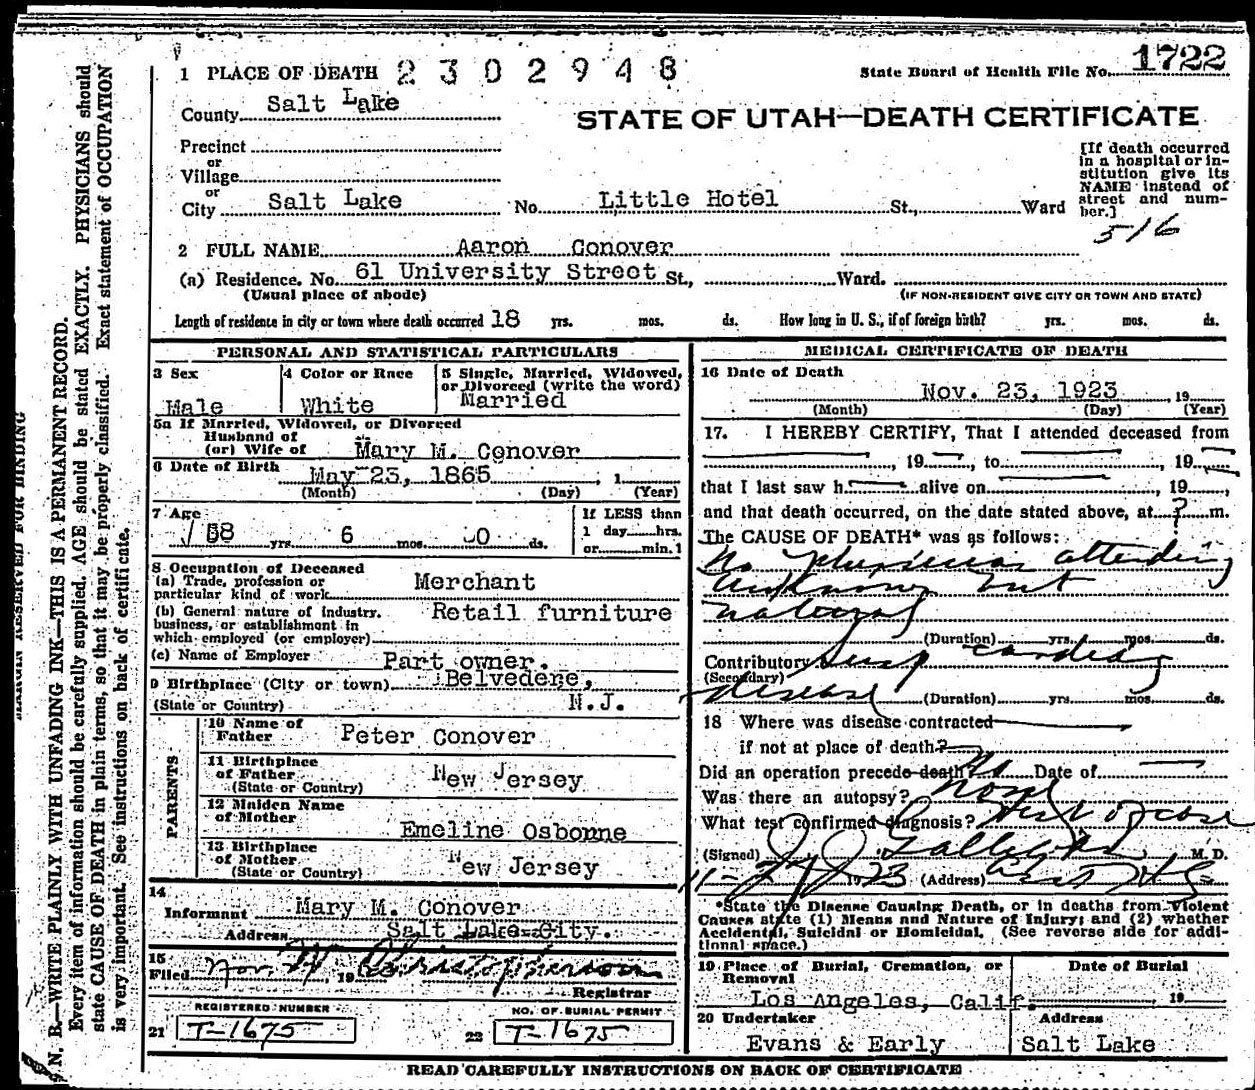 1 PLACE OF DEATH 2302948
State Board of Health File No. 1722
County Salt Lake
STATE OF UTAH—DEATH CERTIFICATE
Precinct
or
Village
or
City Salt Lake No. Little Hotel St., Ward
[If death occurred
in a hospital or in-
stitution give its
NAME instead of
street and num-
ber.]
516
2 FULL NAME Aaron Conover
(a) Residence. No. 61 University Street St., Ward.
(Usual place of abode) (IF NON-RESIDENT GIVE CITY OR TOWN AND STATE)
Length of residence in city or town where death occurred 18 yrs. mos. ds. How long in U. S., if of foreign birth? yrs. mos. ds.
PERSONAL AND STATISTICAL PARTICULARS
3 Sex
Male
4 Color or Race
White
5 Single, Married, Widowed,
or Divorced (write the word)
Married
5a If Married, Widowed, or Divorced
Husband of
(or) Wife of Mary M. Conover
6 Date of Birth May 23, 1865, 1
(Month) (Day) (Year)
7 Age
58 yrs. 6 mos. 0 ds.
If LESS than
1 day hrs.
or min.?
8 Occupation of Deceased
(a) Trade, profession or
particular kind of work Merchant
(b) General nature of industry,
business, or establishment in
which employed (or employer)
Retail furniture
(c) Name of Employer Part owner.
9 Birthplace (City or town) Belvedere,
(State or Country) N.J.
PARENTS
10 Name of
Father Peter Conover
11 Birthplace
of Father
(State or Country) New Jersey
12 Maiden Name
of Mother
Emeline Osborne
13 Birthplace
of Mother
(State or Country) New Jersey
14
Informant Mary M. Conover
Address Salt Lake City.
15
Filed Nov 24, 19
Registrar
REGISTERED NUMBER
21 T-1675
NO. OF BURIAL PERMIT
22 T-1675
MEDICAL CERTIFICATE OF DEATH
16 Date of Death
Nov. 23, 1923, 19
(Month) (Day) (Year)
17. I HEREBY CERTIFY, That I attended deceased from
, 19 , to , 19
that I last saw h alive on , 19 ,
and that death occurred, on the date stated above, at ? m.
The CAUSE OF DEATH* was as follows:
No physician attending
unknown but
natural
(Duration) yrs. mos. ds.
Contributory cardiac
(Secondary)
disease (Duration) yrs. mos. ds.
18 Where was disease contracted
if not at place of death?
Did an operation precede death? No Date of
Was there an autopsy? None
What test confirmed diagnosis? Hist of case
(Signed) M. D.
11- 1923 (Address)
*State the Disease Causing Death, or in deaths from Violent
Causes state (1) Means and Nature of Injury; and (2) whether
Accidental, Suicidal or Homicidal. (See reverse side for addi-
tional space.)
19 Place of Burial, Cremation, or
Removal
Los Angeles, Calif.
Date of Burial
19
20 Undertaker
Evans & Early
Address
Salt Lake
READ CAREFULLY INSTRUCTIONS ON BACK OF CERTIFICATE
MARGIN RESERVED FOR BINDING
N. B.—WRITE PLAINLY WITH UNFADING INK—THIS IS A PERMANENT RECORD.
Every item of information should be carefully supplied. AGE should be stated EXACTLY. PHYSICIANS should
state CAUSE OF DEATH in plain terms, so that it may be properly classified. Exact statement of OCCUPATION
is very important. See instructions on back of certificate.